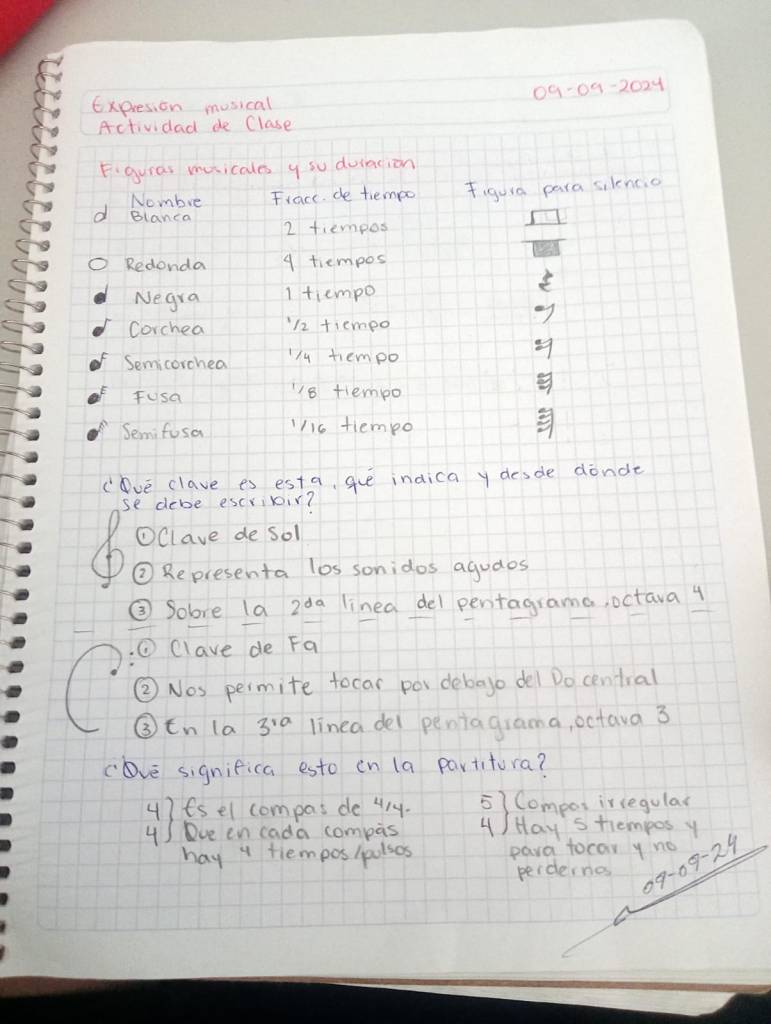 Expresión musical
09-09-2024
Actividad de Clase
Figuras musicales y su duración
Nombre Fracc. de tiempo Figura para silencio
Blanca 2 tiempos
Redonda 4 tiempos
Negra 1 tiempo
Corchea 1/2 tiempo
Semicorchea 1/4 tiempo
Fusa 1/8 tiempo
Semifusa 1/16 tiempo
¿Qué clave es esta, qué indica y desde dónde
se debe escribir?
① Clave de Sol
② Representa los sonidos agudos
③ Sobre la 2da línea del pentagrama, octava 4
① Clave de Fa
② Nos permite tocar por debajo del Do central
③ En la 3ra línea del pentagrama, octava 3
¿Qué significa esto en la partitura?
4} Es el compas de 4/4.
4} Que en cada compás
hay 4 tiempos/pulsos
5} Compas irregular
4} Hay 5 tiempos y
para tocar y no
perdernos
09-09-24